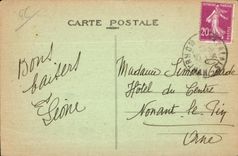 CARTE POSTALE
20
Bons
baisers
Léone
Madame Simone
Hôtel du Centre
Nonant le Pin
Orne